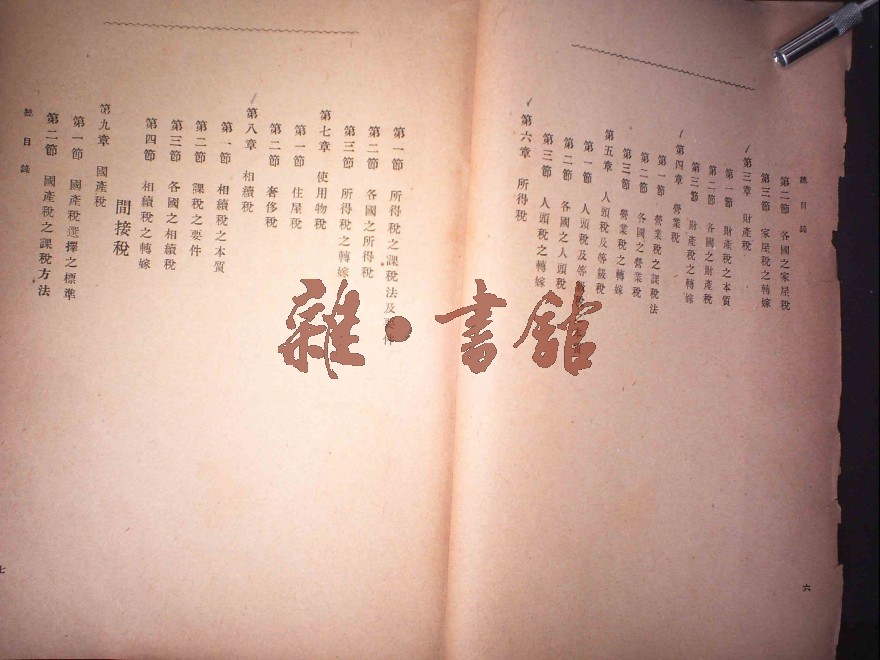 總目錄
第二節 各國之家屋稅
第三節 家屋稅之轉嫁
第三章 財產稅
第一節 財產稅之本質
第二節 各國之財產稅
第三節 財產稅之轉嫁
第四章 營業稅
第一節 營業稅之課稅法
第二節 各國之營業稅
第三節 營業稅之轉嫁
第五章 人頭稅及等級稅
第一節 人頭稅及等
第二節 各國之人頭稅
第三節 人頭稅之轉嫁
第六章 所得稅
六
第一節 所得稅之課稅法及要件
第二節 各國之所得稅
第三節 所得稅之轉嫁
第七章 使用物稅
第一節 住屋稅
第二節 奢侈稅
第八章 相續稅
第一節 相續稅之本質
第二節 課稅之要件
第三節 各國之相續稅
第四節 相續稅之轉嫁
間接稅
第九章 國產稅
第一節 國產稅選擇之標準
第二節 國產稅之課稅方法
總目錄
七
雜·書館